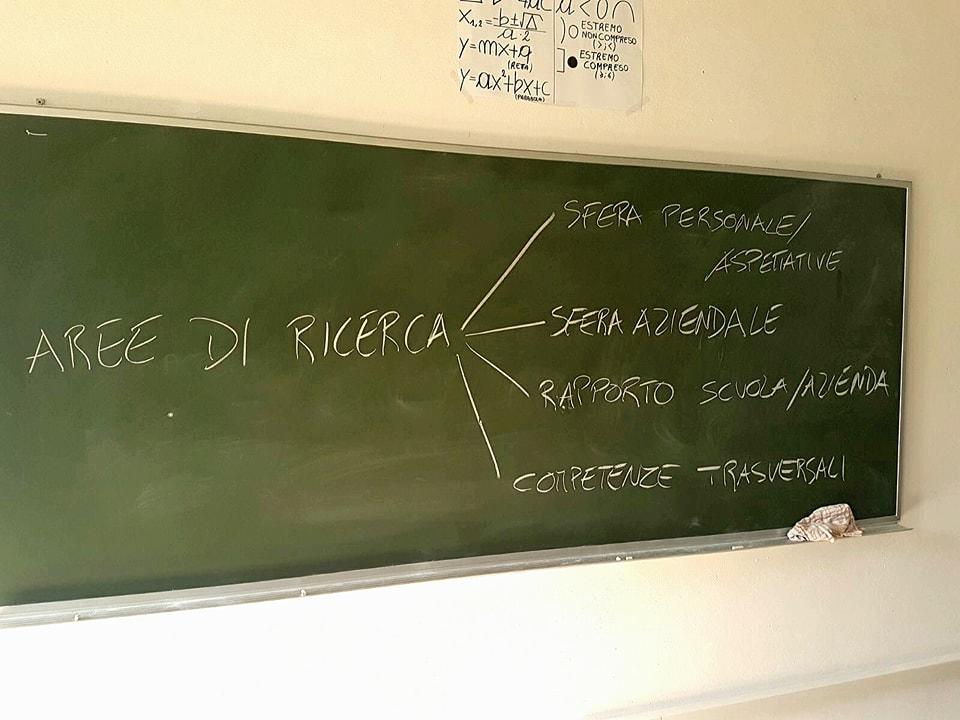 x₁,₂ = -b±√Δ / a·2
y=mx+q
(RETA)
y=ax²+bx+c
(PARABOLA)
a<0 ∩
)○ ESTREMO
NON COMPRESO
(>;<)
]● ESTREMO
COMPRESO
AREE DI RICERCA
SFERA PERSONALE/
ASPETTATIVE
SFERA AZIENDALE
RAPPORTO SCUOLA/AZIENDA
COMPETENZE TRASVERSALI